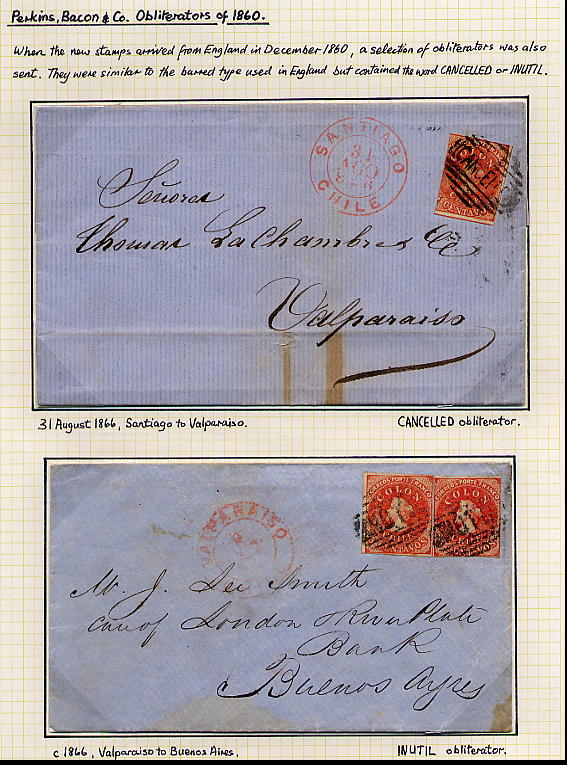 Perkins, Bacon & Co. Obliterators of 1860.
When the new stamps arrived from England in December 1860, a selection of obliterators was also
sent. They were similar to the barred type used in England but contained the word CANCELLED or INUTIL.
SANTIAGO
31
AGO
CHILE
COLON
CENTAVOS
Señores
Thomas LaChambre & Co
Valparaiso
31 August 1866, Santiago to Valparaiso.
CANCELLED obliterator.
CORREOS PORTE FRANCO CORREOS PORTE FRANCO
COLON COLON
CENTAVOS CENTAVOS
VALPARAISO
Mr. J. Lee Smith
care of London & River Plate
Bank
Buenos Ayres
c 1866, Valparaiso to Buenos Aires.
INUTIL obliterator.